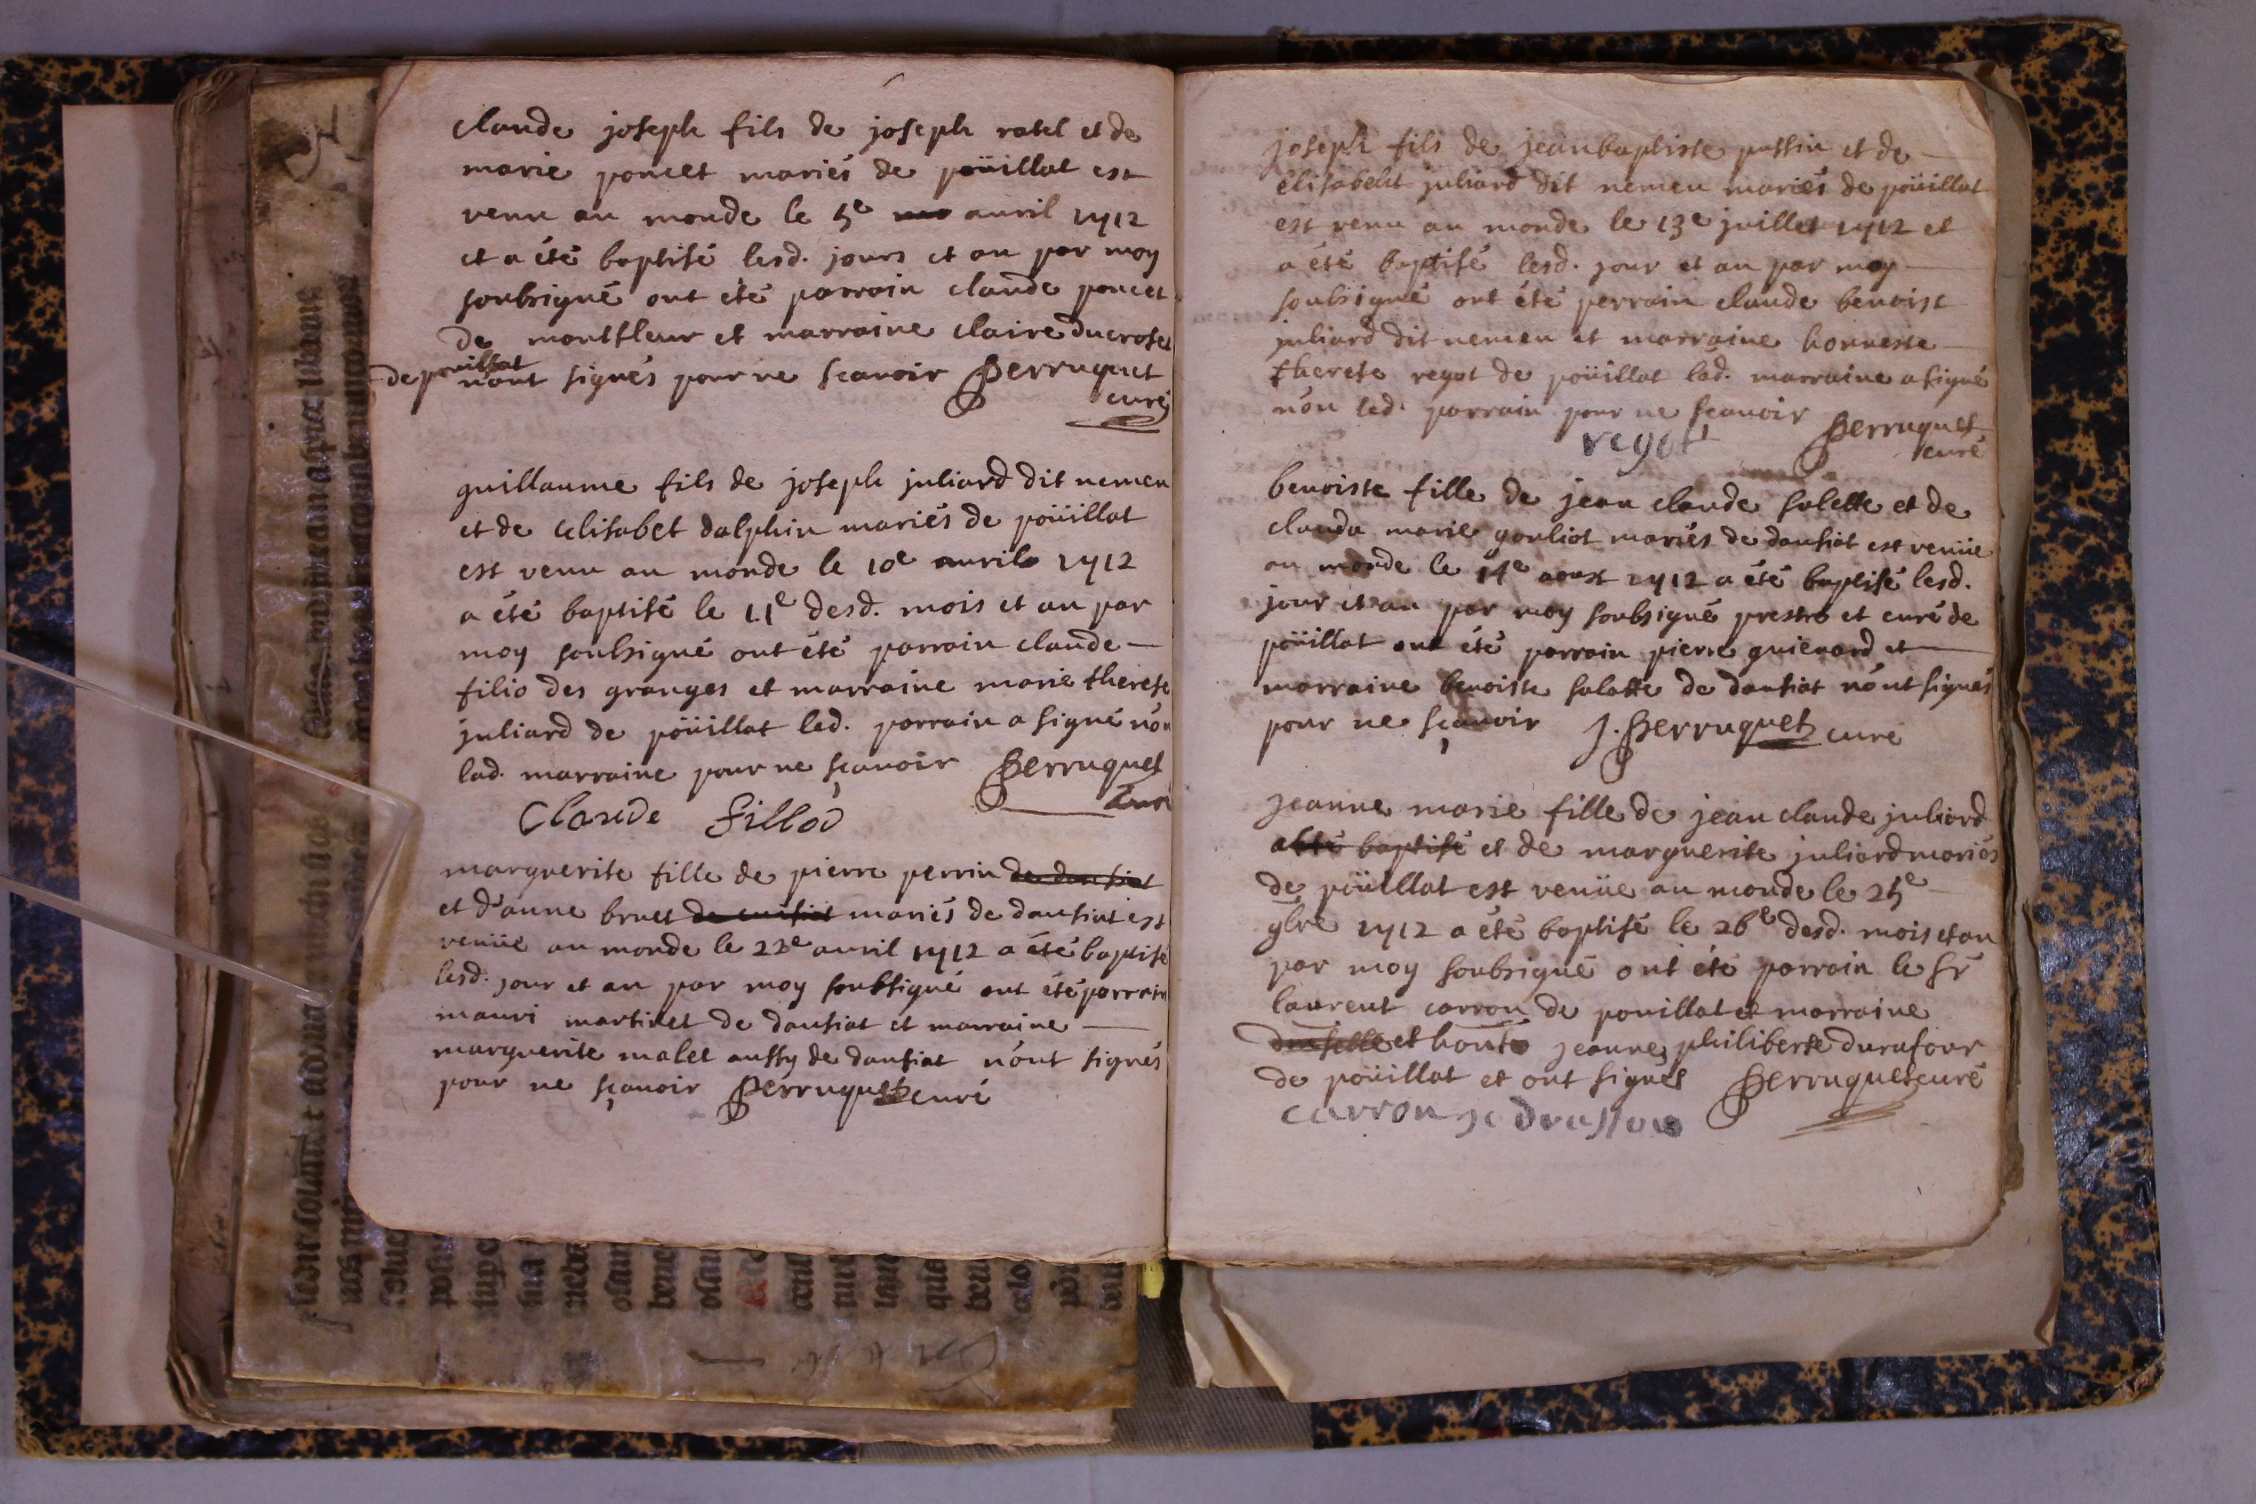 claude joseph fils de joseph ratel et de
marie poncet mariés de poüillat est
venu au monde le 5e avril 1712
et a été baptisé lesd. jours et an par moy
soubsigné ont été parrain claude poncet
de montfleur et marraine claire ducroset
de pouillat n'ont signés pour ne scavoir Perruquet
curé
guillaume fils de joseph juliard dit nemeu
et de elisabet dalphin mariés de poüillat
est venu au monde le 10e avril 1712
a été baptisé le 11e desd. mois et an par
moy soubsigné ont été parrain claude
filio des granges et marraine marie therese
juliard de poüillat led. parrain a signé non
lad. marraine pour ne sçavoir Perruquet
curé
Claude Fillod
marguerite fille de pierre perrin de dansiat
et d'anne bruet mariés de dansiat est
venüe au monde le 22e avril 1712 a été baptisé
lesd. jour et an par moy soubsigné ont été parrain
mauri martinet de dansiat et marraine
marguerite malet aussy de dansiat n'ont signés
pour ne sçavoir Perruquet curé
joseph fils de jean baptiste puthin et de
elisabeht juliard dit nemeu mariés de poüillat
est venu au monde le 13e juillet 1712 et
a été baptisé lesd. jour et an par moy
soubsigné ont été perrain claude benoist
juliard dit nemeu et marraine honneste
therese regot de poüillat lad. marraine a signé
non led. parrain pour ne sçavoir Perruquet
regot curé
benoiste fille de jean claude salette et de
clauda marie gouliot mariés de dansiat est venüe
au monde le 14e aoust 1712 a été baptisé lesd.
jour et an par moy soubsigné prestre et curé de
poüillat ont été parrain pierre guienard et
marraine benoiste salatte de dansiat n'ont signés
pour ne sçavoir J. Perruquet curé
jeanne marie fille de jean claude juliard
a été baptisé et de marguerite juliard mariés
de poüillat est venüe au monde le 25e
9bre 1712 a été baptisé le 26e desd. mois et an
par moy soubsigné ont été parrain le sr
laurent carron de pouillat et marraine
et honte jeanne philiberte durafour
de poüillat et ont signés Perruquet curé
carron